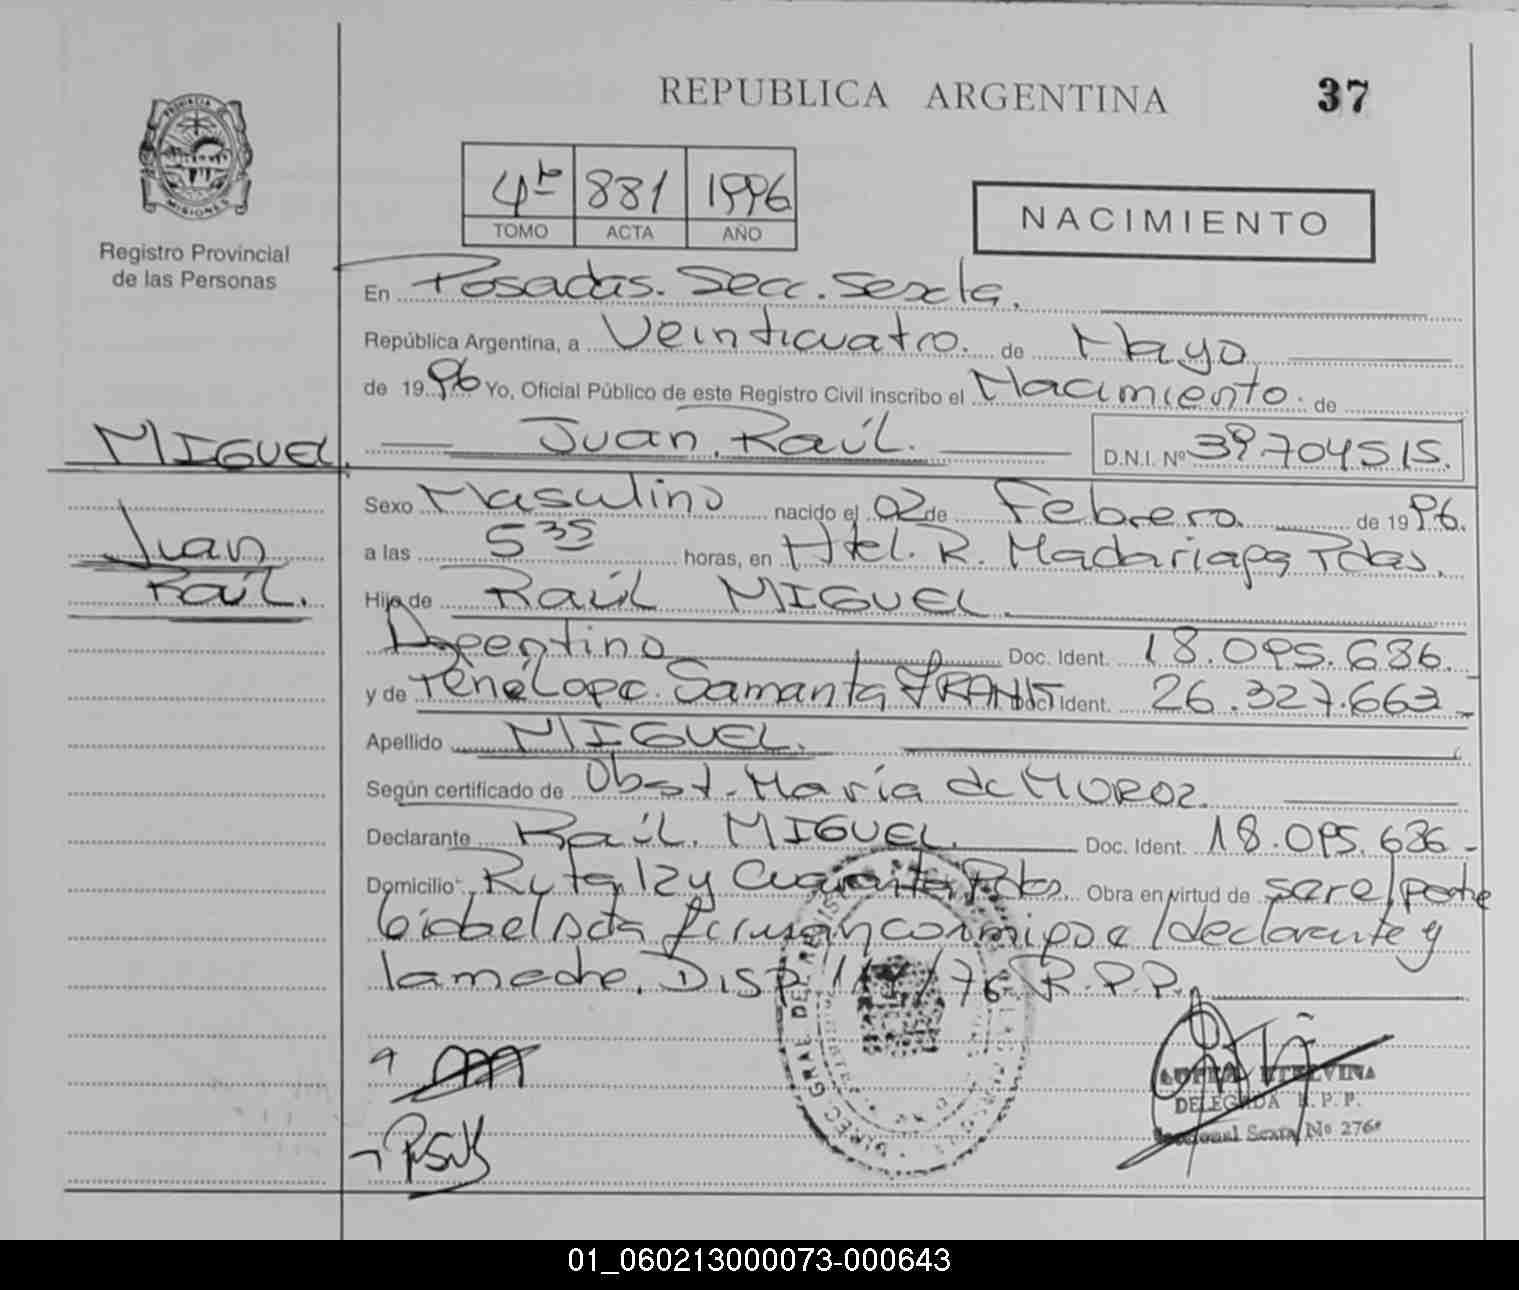 REPUBLICA ARGENTINA
37
PROVINCIA
MISIONES
Registro Provincial
de las Personas
4to 881 1996
TOMO ACTA AÑO
NACIMIENTO
En Posadas. Secc. Sexta.
República Argentina, a Veinticuatro. de Mayo
de 1996 Yo, Oficial Público de este Registro Civil inscribo el Nacimiento. de
MIGUEL,
Juan, Raúl. D.N.I. Nº 39.704515.
Juan
Raúl.
Sexo Masculino nacido el 02 de Febrero de 1996.
a las 5 35 horas, en Htel. R. Madariaga Pdas.
Hijo de Raúl MIGUEL.
Argentino Doc. Ident. 18.095.636.
y de Penélope. Samanta Doc. Ident. 26.327.663-
Apellido MIGUEL.
Según certificado de Obst. María de MOROZ.
Declarante Raúl. MIGUEL. Doc. Ident. 18.095.636-
Domicilio Ruta 12 y Cuarenta Pdas. Obra en virtud de ser el padre
declarante y
la madre. Disp. /76 R.P.P.
DELEGADA R.P.P.
Seccional Sexta Nº 276
01_060213000073-000643